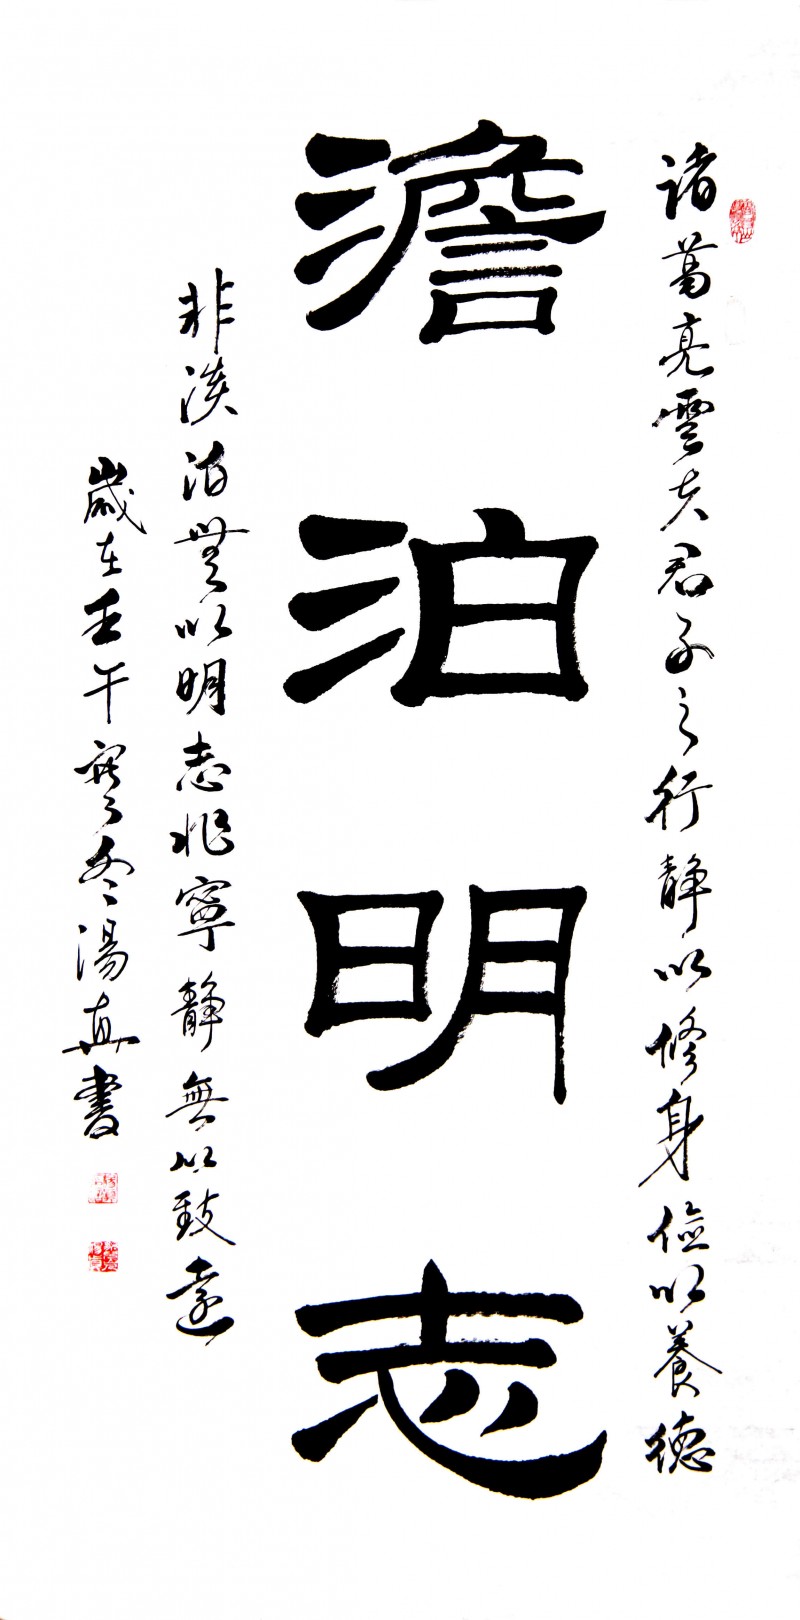 諸葛亮雲夫君子之行靜以修身儉以養德
澹泊明志
非淡泊無以明志非寧靜無以致遠
歲在壬午寒冬湯真書